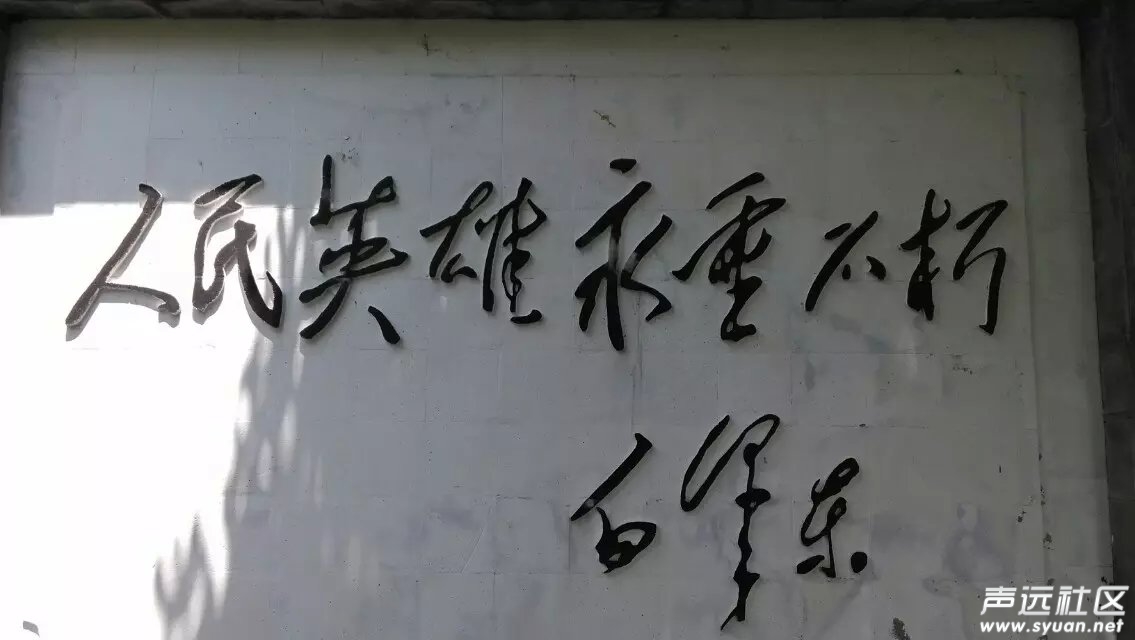 人民英雄永垂不朽
白泽东
声远社区
www.syuan.net